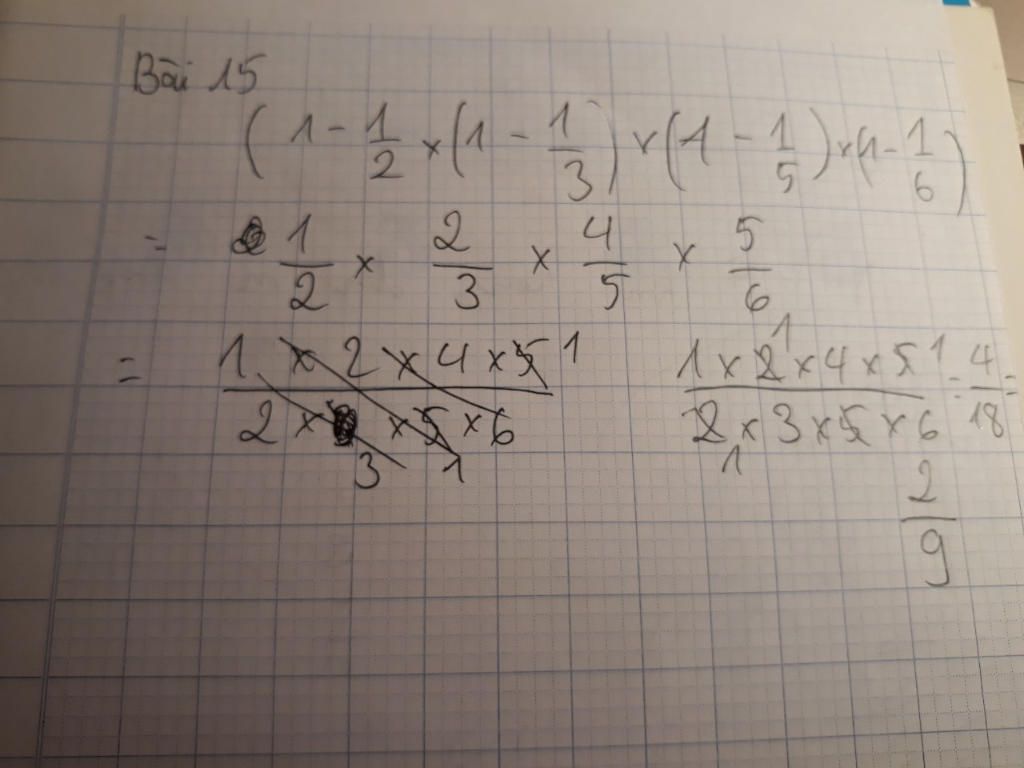 Bài 15
( 1 - 1/2 × (1 - 1/3) × (1 - 1/5) × (1 - 1/6)
= 1/2 × 2/3 × 4/5 × 5/6
= 1 × 2 × 4 × 5 1 / 2 × 3 × 5 1 × 6    1 × 2 1 × 4 × 5 1 / 2 1 × 3 × 5 × 6 = 4/18 =
2/9